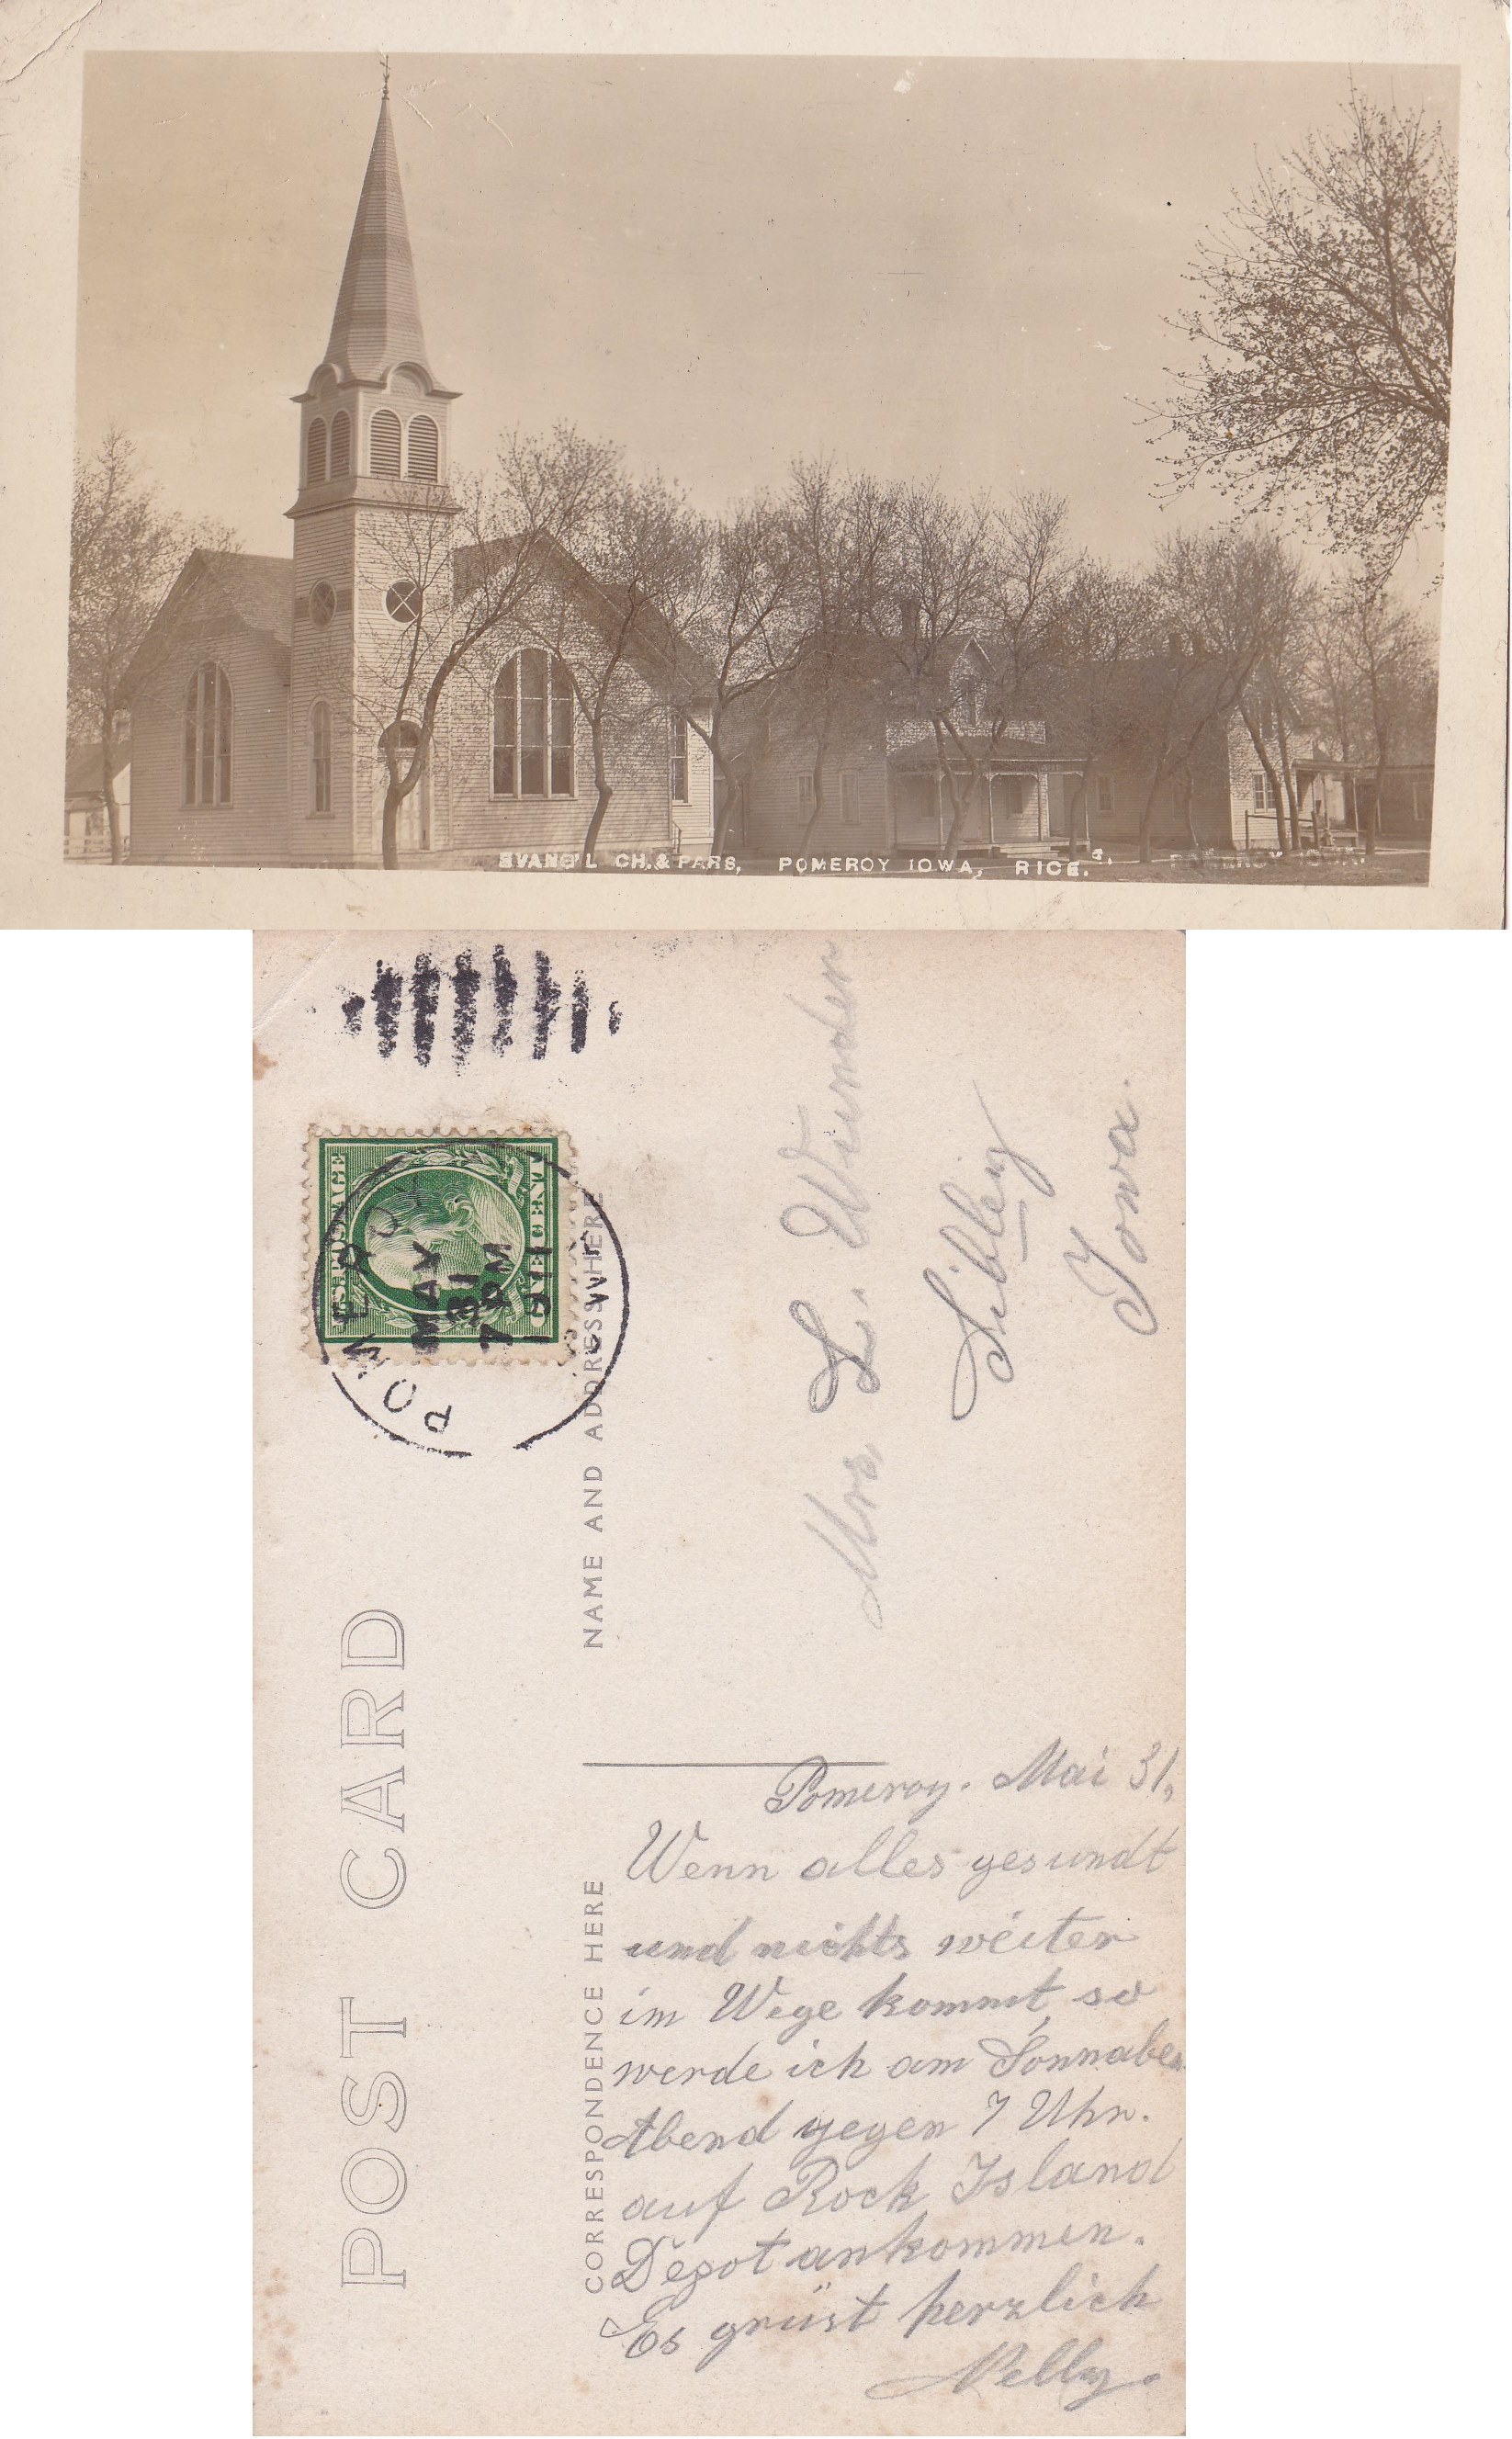 EVANG'L CH.& PARS, POMEROY IOWA, RICE.
POMEROY IOWA.
POST CARD
U.S. POSTAGE
ONE CENT 1
POMEROY
IOWA
MAY
31
7 PM
1911
NAME AND ADDRESS HERE
Mrs L. Wunder
Sibley
Iowa.
CORRESPONDENCE HERE
Pomeroy. Mai 31,
Wenn alles gesundt
und nichts weiter
im Wege kommt, so
werde ich am Sonnaben
Abend gegen 7 Uhr.
auf Rock Island
Depot ankommen.
Es grüst herzlich
Nelly.